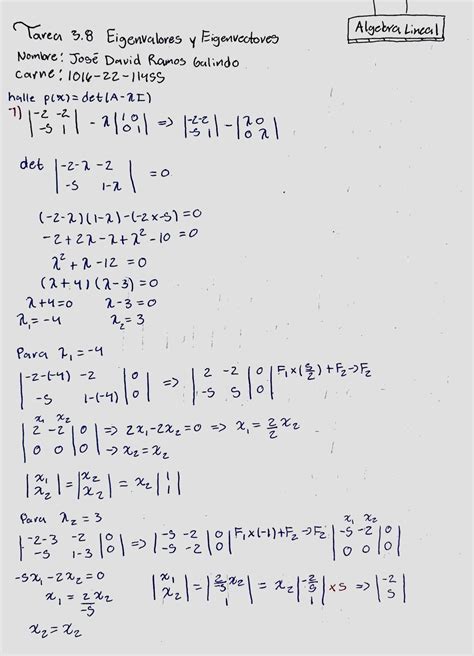 Algebra Lineal
Tarea 3.8 Eigenvalores y Eigenvectores
Nombre: José David Ramos Galindo
Carne: 1016-22-11455
halle p(x)=det(A-λI)
1) |-2 -2; -5 1| - λ|1 0; 0 1| => |-2 -2; -5 1| - |λ 0; 0 λ|
det |-2-λ -2; -5 1-λ| = 0
(-2-λ)(1-λ)-(-2x-5)=0
-2+2λ-λ+λ²-10=0
λ²+λ-12=0
(λ+4)(λ-3)=0
λ+4=0 λ-3=0
λ₁=-4 λ₂=3
Para λ₁=-4
|-2-(-4) -2 | 0; -5 1-(-4) | 0| => |2 -2 | 0; -5 5 | 0| F₁x(5/2)+F₂->F₂
x₁ x₂
|2 -2 | 0; 0 0 | 0| => 2x₁-2x₂=0 => x₁= 2/2 x₂
-> x₂=x₂
|x₁; x₂| = |x₂; x₂| = x₂|1; 1|
Para λ₂=3
|-2-3 -2 | 0; -5 1-3 | 0| => |-5 -2 | 0; -5 -2 | 0| F₁x(-1)+F₂->F₂ x₁ x₂ |-5 -2 | 0; 0 0 | 0|
-5x₁-2x₂=0
x₁ = 2x₂/-5
|x₁; x₂| = |2/-5 x₂; x₂| = x₂|-2/5; 1| x5 => |-2; 5|
x₂=x₂